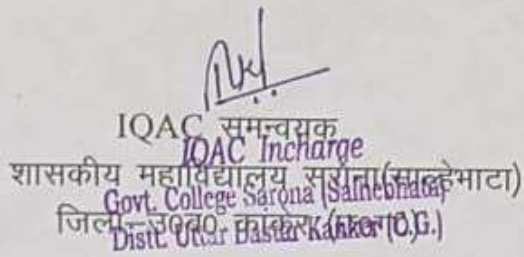 IQAC समन्वयक
IQAC Incharge
शासकीय महाविद्यालय सरोना(साल्हेभाटा)
Govt. College Sarona (Salhebhata)
जिला-उ०ब० कांकेर
Distt. Uttar Bastar Kanker (C.G.)